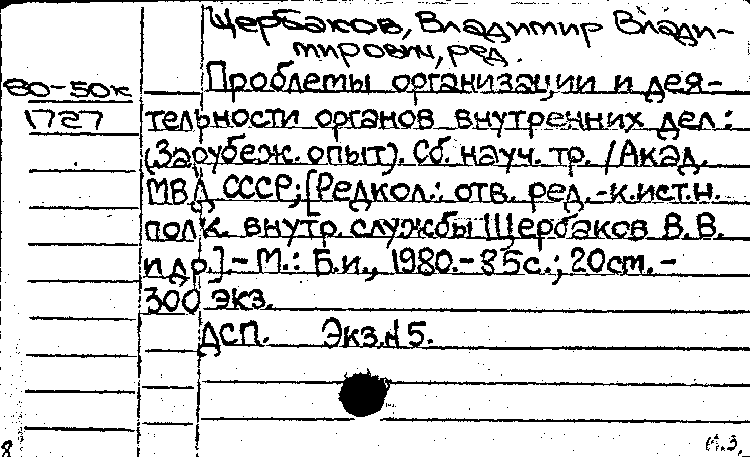 Щербаков, Владимир Влади-
мирович, ред.
80-50к
1727
Проблемы организации и дея-
тельности органов внутренних дел:
(Зарубеж. опыт). Сб. науч. тр. /Акад.
МВД СССР; [Редкол.: отв. ред.-к.ист.н.
полк. внутр. службы Щербаков В.В.
и др.].- М.: Б.и., 1980.- 85с.; 20см.-
300 экз.
ДСП. Экз.№5.
8